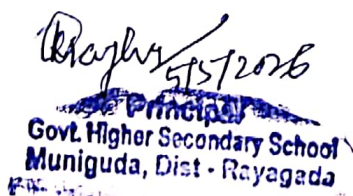 5/5/2026
Principal
Govt. Higher Secondary School
Muniguda, Dist - Rayagada